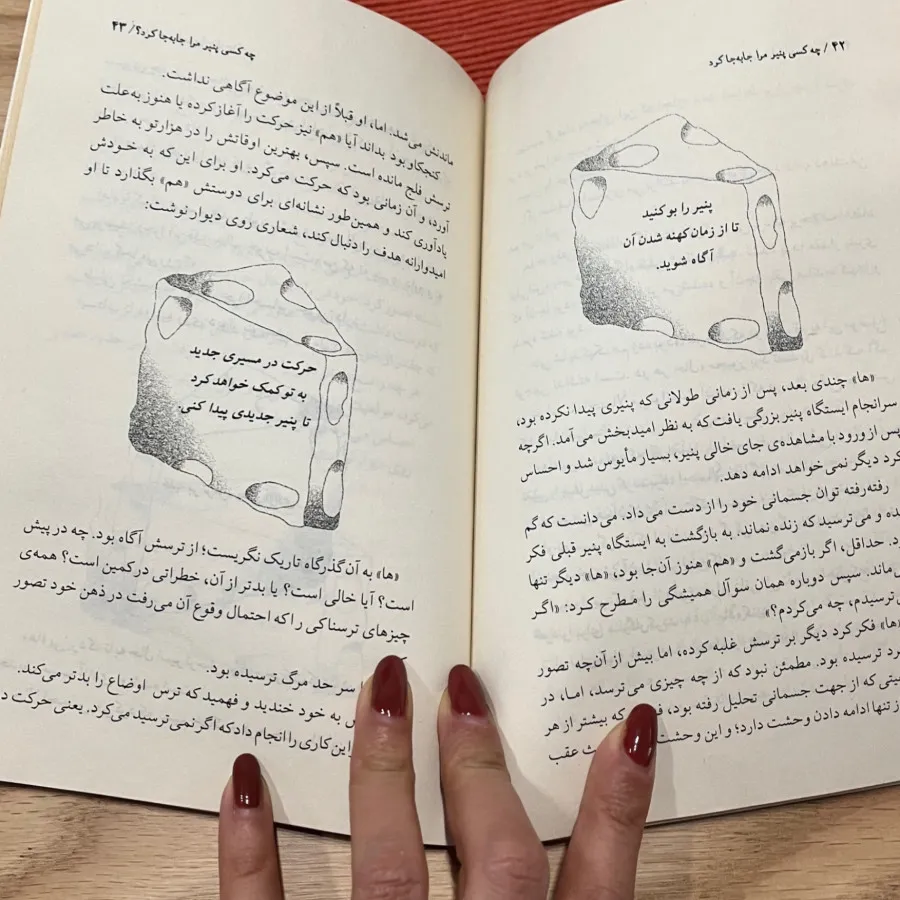 ۴۲ / چه کسی پنیر مرا جابه‌جا کرد
پنیر را بو کنید
تا از زمان کهنه شدن آن
آگاه شوید.
«ها» چندی بعد، پس از زمانی طولانی که پنیری پیدا نکرده بود،
سرانجام ایستگاه پنیر بزرگی یافت که به نظر امیدبخش می‌آمد. اگرچه
پس از ورود با مشاهده‌ی جای خالی پنیر، بسیار مأیوس شد و احساس
کرد دیگر نمی‌خواهد ادامه دهد.
رفته‌رفته توان جسمانی خود را از دست می‌داد. می‌دانست که گم
و می‌ترسید که زنده نماند. به بازگشت به ایستگاه پنیر قبلی فکر
حداقل، اگر بازمی‌گشت و «هم» هنوز آن‌جا بود، «ها» دیگر تنها
سپس دوباره همان سوآل همیشگی را مطرح کرد: «اگر
چه می‌کردم؟»
«ها» فکر کرد دیگر بر ترسش غلبه کرده، اما بیش از آن‌چه تصور
ترسیده بود. مطمئن نبود که از چه چیزی می‌ترسد، اما، در
که از جهت جسمانی تحلیل رفته بود، که بیشتر از هر
از تنها ادامه دادن وحشت دارد؛ و این عقب
چه کسی پنیر مرا جابه‌جا کرد؟/ ۴۳
ماندنش می‌شد. اما، او قبلاً از این موضوع آگاهی نداشت.
کنجکاو بود بداند آیا «هم» نیز حرکت را آغاز کرده یا هنوز به‌علت
ترسش فلج مانده است. سپس، بهترین اوقاتش را در هزارتو به خاطر
آورد، و آن زمانی بود که حرکت می‌کرد. او برای این که به خودش
یادآوری کند و همین‌طور نشانه‌ای برای دوستش «هم» بگذارد تا او
امیدوارانه هدف را دنبال کند، شعاری روی دیوار نوشت:
حرکت در مسیری جدید
به تو کمک خواهد کرد
تا پنیر جدیدی پیدا کنی.
«ها» به آن گذرگاه تاریک نگریست؛ از ترسش آگاه بود. چه در پیش
است؟ آیا خالی است؟ یا بدتر از آن، خطراتی در کمین است؟ همه‌ی
چیزهای ترسناکی را که احتمال وقوع آن می‌رفت در ذهن خود تصور
سر حد مرگ ترسیده بود.
به خود خندید و فهمید که ترس اوضاع را بدتر می‌کند.
این کاری را انجام داد که اگر نمی‌ترسید می‌کرد، یعنی حرکت